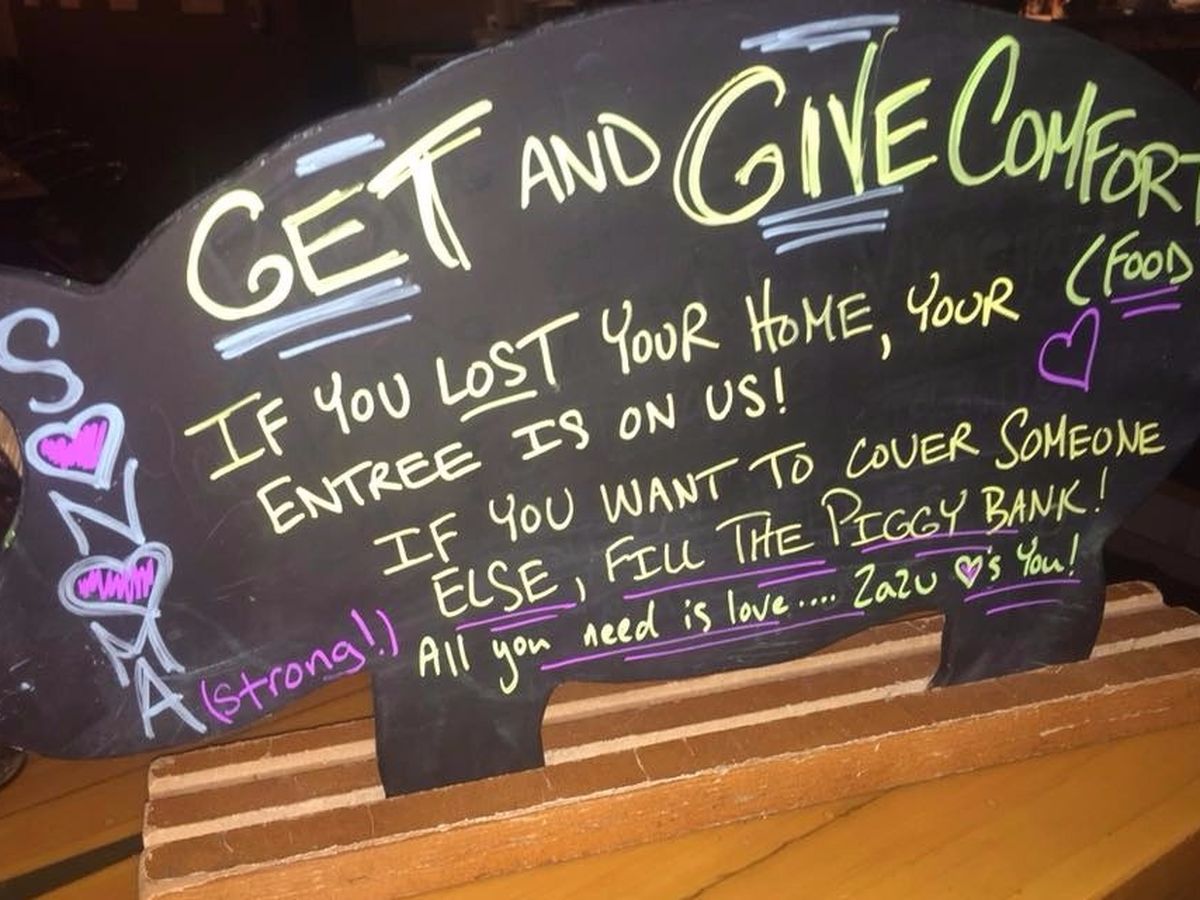 GET AND GIVE COMFORT
(FOOD
IF YOU LOST YOUR HOME, YOUR
ENTREE IS ON US!
IF YOU WANT TO COVER SOMEONE
ELSE, FILL THE PIGGY BANK!
All you need is love.... Zazu ♡'s You!
S♡N♡MA
(strong!)